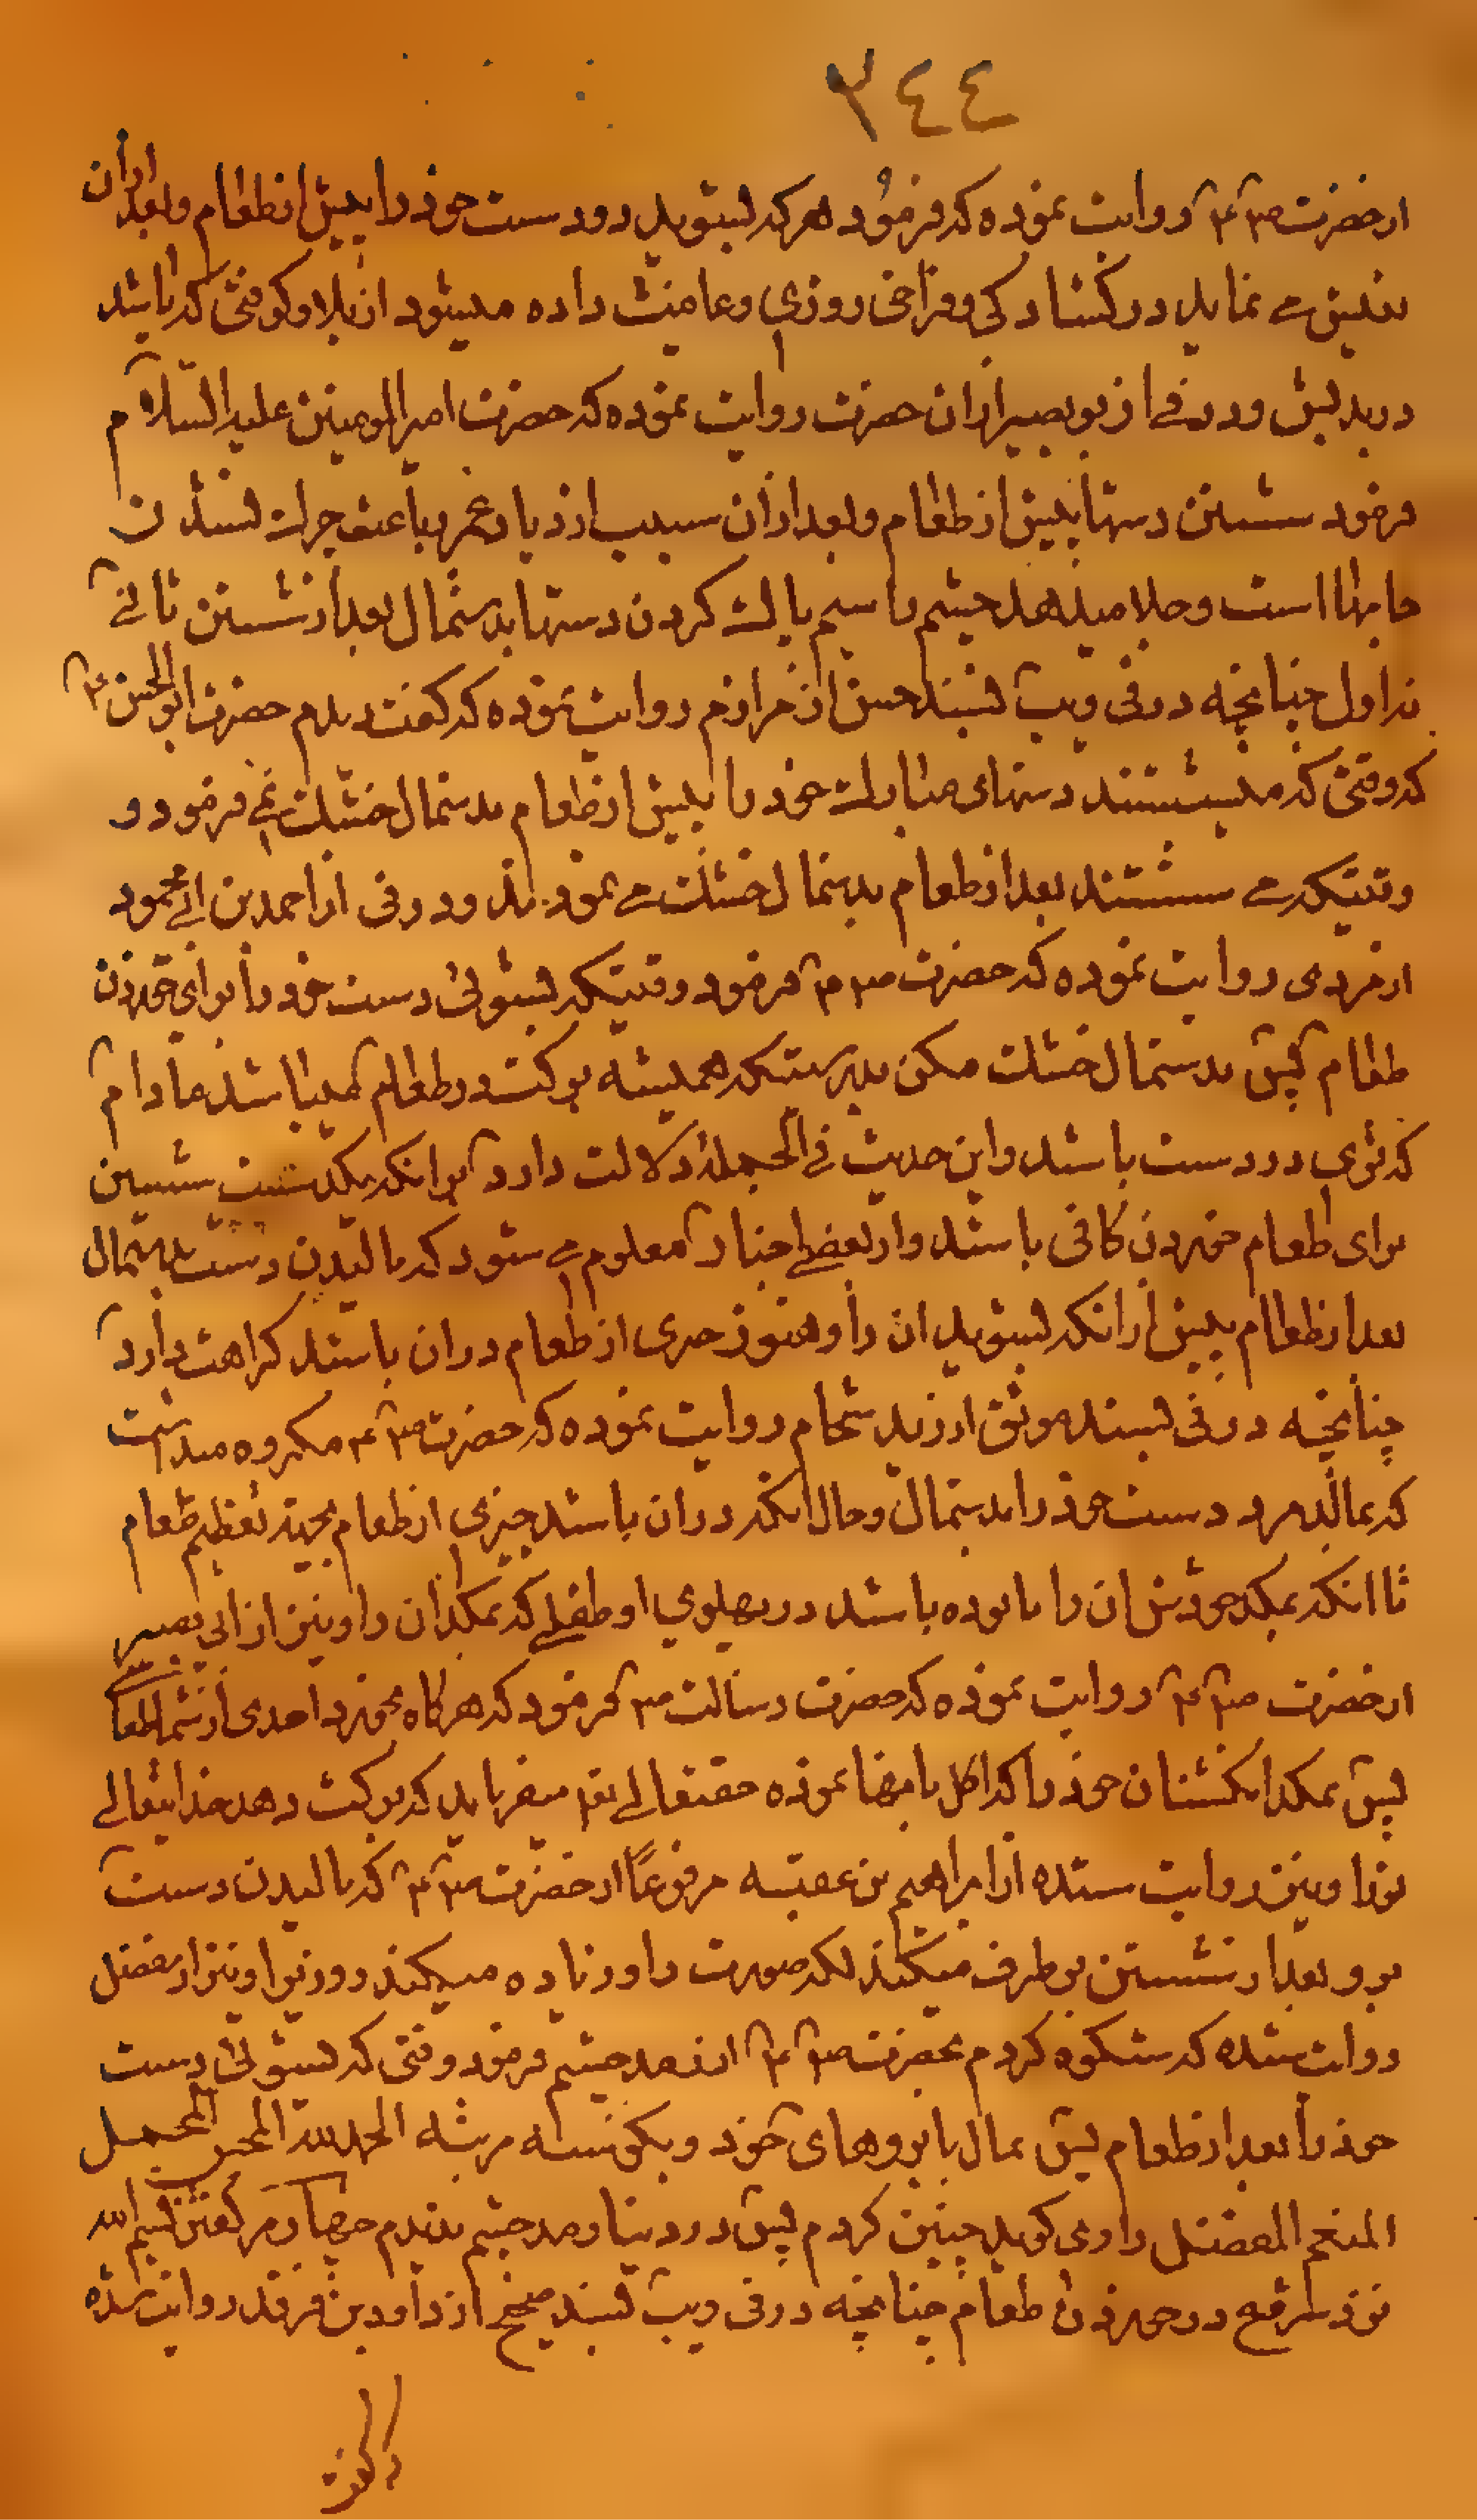 ٣٤٤
از حضرت ص ع م روایت نموده که فرموده هر که بشوید دو دست خود را پیش از طعام و بعد از ان
تعیش می نماید در کشادکی و فراخی روزی و عافیت داده میشود از بلا و کوفتی که باشد
در بدنش و در فی از بو بصیر از ان حضرت روایت نموده که حضرت امیر المومنین علیه السلام
فرمود شستن دستها پیش از طعام و بعد از ان سبب ازدیاد عمر و باعث چرك نشدن
جامها است و جلا میدهد چشم را سیم پاك کردن دستها بدستمال بعد از شستن ثانی
نه اول چنانچه در فی ویب بسند حسن از مرازم روایت نموده که کفت دیدم حضرت ابو الحسن ع م
که وقتی که میشستند دستهای مبارك خود را پیش از طعام بدستمال خشك نمی فرمود و
وقتیکه می شستند بعد از طعام بدستمال خشك می نمودند و در فی از احمد بن ابی محمود
از مردی روایت نموده که حضرت ص ع م فرمود وقتیکه بشوئی دست خود را برای خوردن
طعام پس بدستمال خشك مکن بدرستیکه همیشه برکت در طعام میباشد مادام
که تری در دست باشد و این حدیث فی الجمله دلالت دارد برانکه یکدست شستن
برای طعام خوردن کافی باشد و از بعضی اخبار معلوم می شود که مالیدن دست بدستمال
بعد از طعام پیش از انکه بشوید ان را و هنوز چیزی از طعام در ان باشد کراهت دارد
چنانچه در فی بسند موثق از زید شحام روایت نموده که حضرت ص ع م مکروه میداشت
که بمالد مرد دست خود را بدستمال و حال انکه در ان باشد چیزی از طعام بجهة تعظیم طعام
تا انکه بمکد خودش ان را یا بوده باشد در پهلوی او طفلی که بمکد ان را و نیز از ابی بصیر
از حضرت ص ع م روایت نموده که حضرت رسالت ص م فرمود که هر کاه بخورد احدی از شما طعام
پس بمکد انکشتان خود را که اکل بانها نموده حقتعالی میفرماید که برکت دهد خدایتعالی
ترا و نیز روایت شده از ابراهیم بن عقبه مرفوعًا از حضرت ص ع م که مالیدن دست
برو بعد از شستن بر طرف میکند لکه صورت را و زیاده میکند روزیرا و نیز از مفضل
روایت شده که شکوه کردم بحضرت ص ع م از رمد چشم فرمود وقتی که بشوئی دست
خود را بعد از طعام پس بمال بابروهای خود و بکو سه مرتبه الحمد لله المحسن المجمل
المنعم المفضل راوی کوید چنین کردم پس درد بینا رمد چشم ندیدم چهارم کفتن بسم الله
نزد شروع در خوردن طعام چنانچه در فی ویب بسند صحیح از داود بن فرقد روایت شده